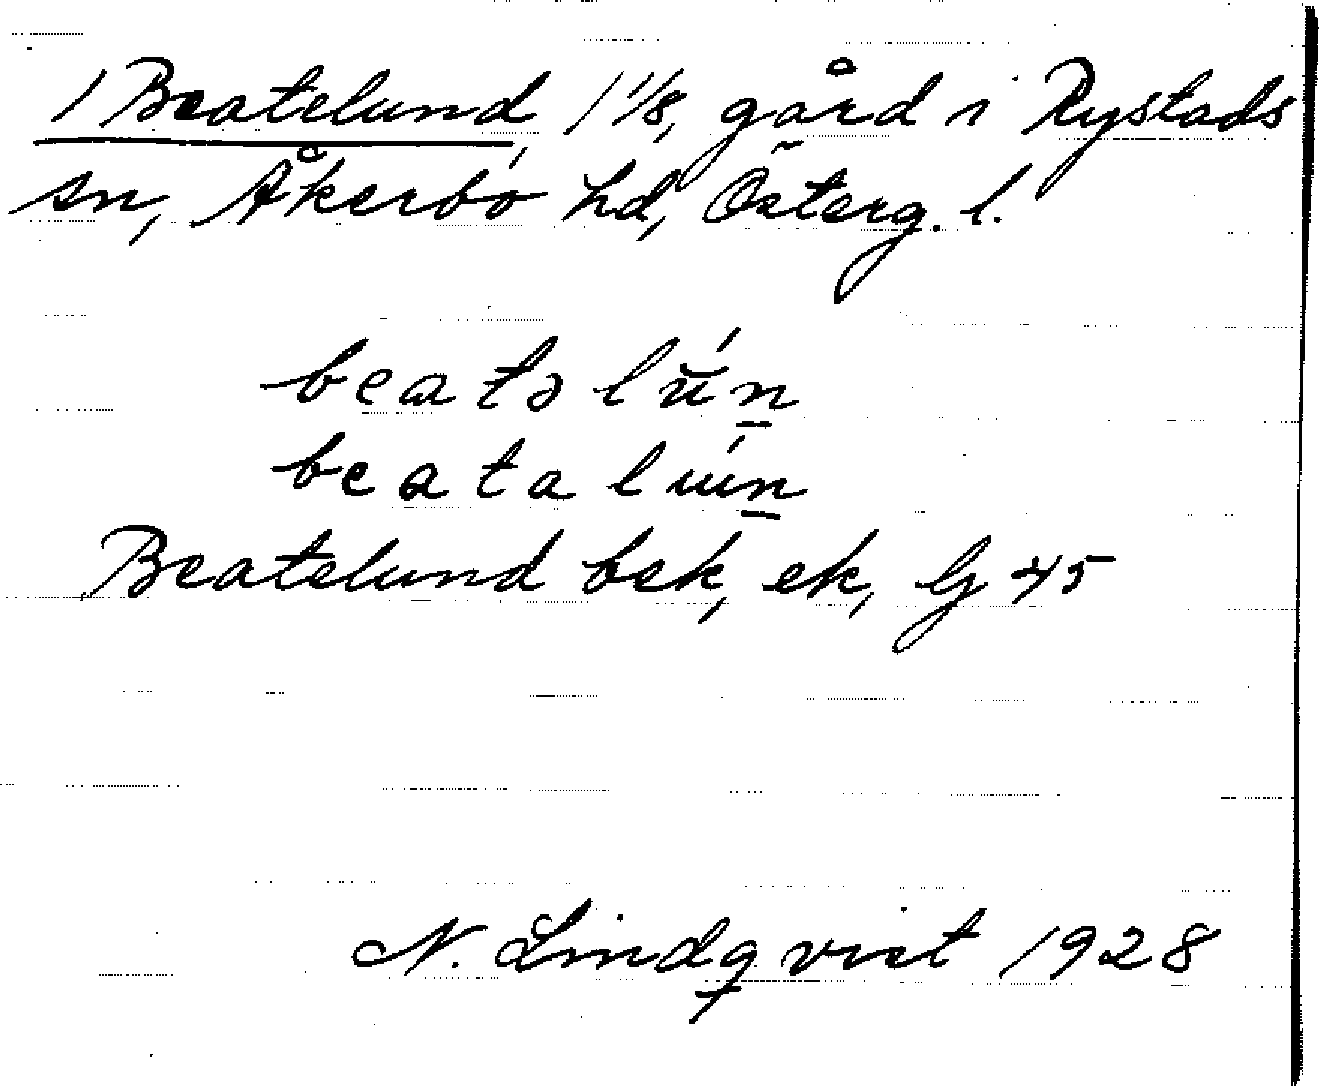 1 Beatelund, 1 1/8, gård i Rystads
sn, Åkerbo hd, Österg. l.
beatə lŭ́n
beata lún
Beatelund bek, ek, Gj 45
N. Lindqvist 1928